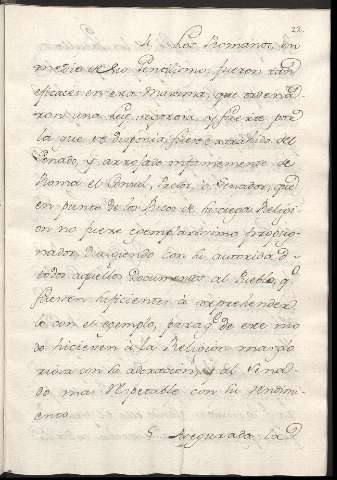 22.
4. Los Romanos, en
medio de su Gentilismo, fueron tan
eficaces en esta Maxima, que ordena-
ron una Ley rigorosa, y fuerte por
la que se disponia, fuese extrahido del
Senado, y arrojado infamemente de
Roma el Consul, Pretor, o Senador, que
en punto de los Ritos de su ciega Religi-
on no fuese exemplarissimo propug-
nador, dirigiendo con su autoridad
todos aquellos Documentos al Pueblo, q.e
fuesen suficientes à
le con el exemplo, para q.e de ese mo
do hiciesen à la Religion mas glo
riosa con la adoracion, y al Sena-
do mas respetable con su rendimi-
ento.
5. Asegurada, la